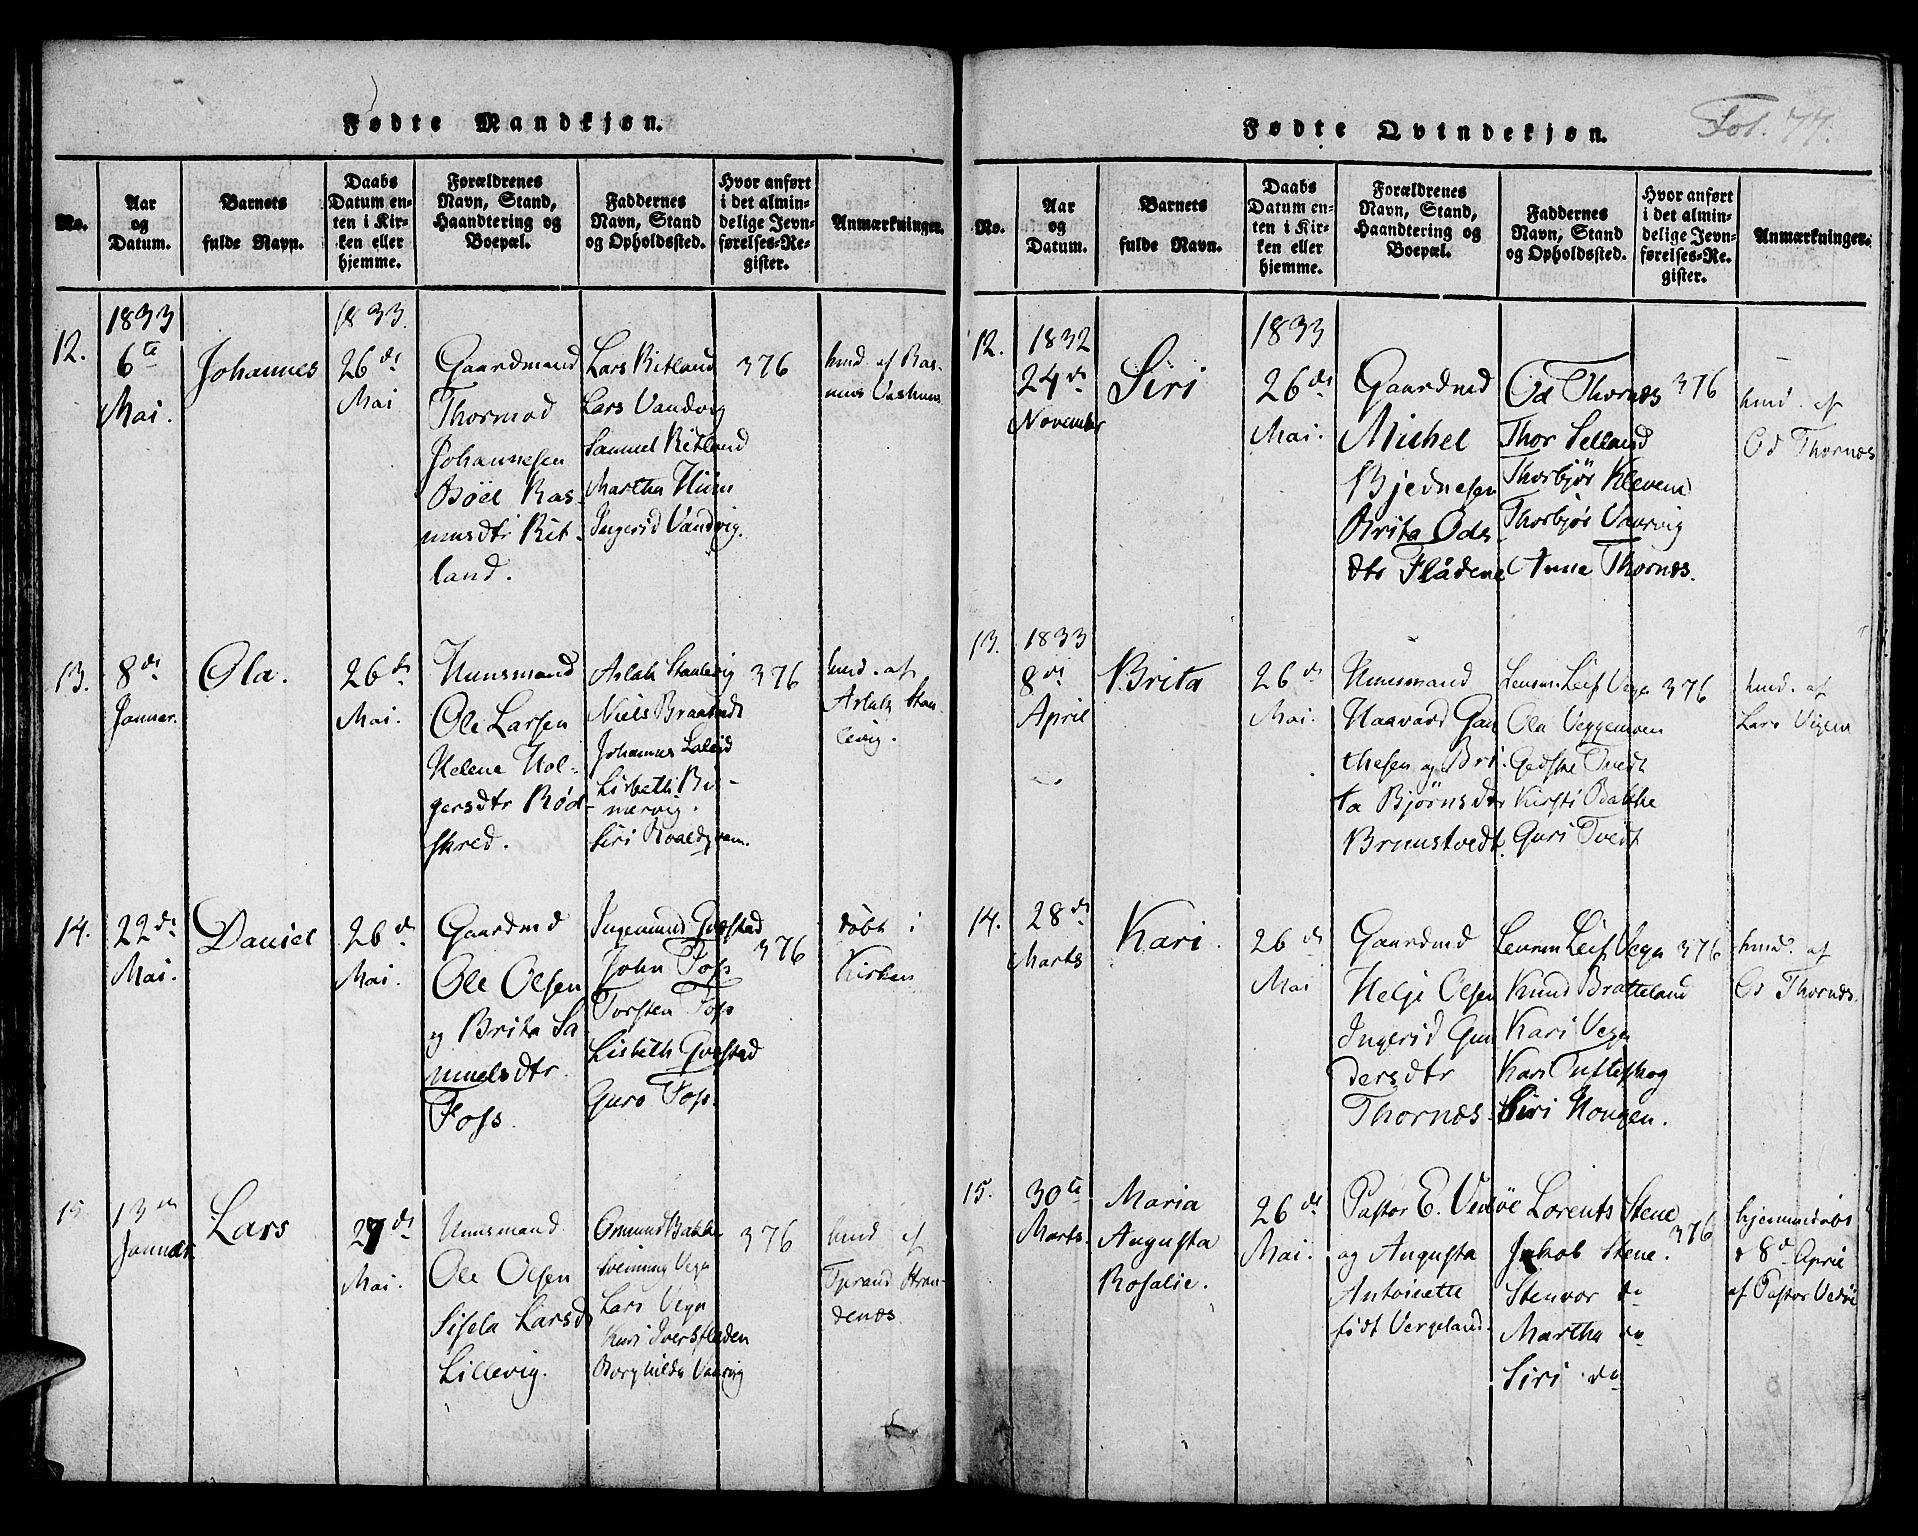 Fødte Mandkjøn.
No.
Aar
og
Datum.
Barnets
fulde Navn.
Daabs
Datum en-
ten i Kir-
ken eller
hjemme.
Forældrenes
Navn, Stand,
Haandtering og
Boepæl.
Faddernes
Navn, Stand
og Opholdssted.
Hvor anført
i det almin-
delige Jevn-
førelses-Re-
gister.
Anmærkninger.
12.
1833
6te
Mai.
Johannes
1833.
26de
Mai
Gaardmand
Thormod
Johannesen
Boel Ras-
musdtr Rit-
land.
Lars Ritland
Lars Vandvig
Samuel Ritland
Martha Hiim
Ingerid Vandvig.
376
hmd. af Ras-
mus
13.
8de
Januar.
Ola.
26de
Mai.
Huusmand
Ole Larsen
Helene Hol-
gersdtr Rød-
skred.
Aslak Stanlevig
Niels
Johannes
Lisbeth
Siri
376
hmd. af
Aslak Stan
levig.
14.
22de
Mai.
Daniel
26de
Mai.
Gaardmd
Ole Olsen
og Brita Sa
muelsdtr
Foss.
Ingemund
John Foss
Torsten Foss
Lisbeth
Guro Foss.
376
døbt i
Kirken
15
13de
Januar.
Lars
27de
Mai.
Huusmand
Ole Olsen
Sisela Larsd
Lillevig.
Omund Bakke
Svening Vega
Lars Vega
Kari
Borghilda Vaarvig
376
hmd af
Stran-
denæs
Fødte Qvindekjøn.
Fol. 77.
No.
Aar
og
Datum.
Barnets
fulde Navn.
Daabs
Datum en-
ten i Kir-
ken eller
hjemme.
Forældrenes
Navn, Stand,
Haandtering og
Boepæl.
Faddernes
Navn, Stand
og Opholdssted.
Hvor anført
i det almin-
delige Jevn-
førelses-Re-
gister.
Anmærkninger.
12.
1832
24de
November
Siri
1833
26de
Mai.
Gaardmd
Michel
Bjednesen
Brita Ods-
dtr Flådene
Od Thornæs
Thor Selland
Thorbjør Klevene
Thorbjør Vaarvig
Anna Thornæs.
376
hmd. af
Od Thornæs
13.
1833
8de
April
Brita
26de
Mai.
Huusmand
Haavard Gau
thesen og Bri-
ta Bjørnsdtr
Brumstvedt.
Lensm. Leif Vega
Ola Veggemoen
Gedske Tvedt
Kirsti Bakke
Guri Tvedt
376
hmd. af
Lars
14.
28de
Marts
Kari.
26de
Mai
Gaardmd
Helje Olsen
Ingerid Gun
dersdtr
Thornæs.
Lensm Leif Vega
Knud Bratteland
Kari Vega
Kari Tufteskog
Siri Hougen.
376
hmd. af
Od Thornæs.
15.
30te
Marts.
Maria
Augusta
Rosalie.
26de
Mai.
Pastor E. Vedøe
og Augusta
Antoinette
født Vergeland.
Lorents Stene
Jakob Stene.
Stenvor do
Martha do
Siri do
376
hjemmedøbt
d 8de April
af Pastor Vedøe